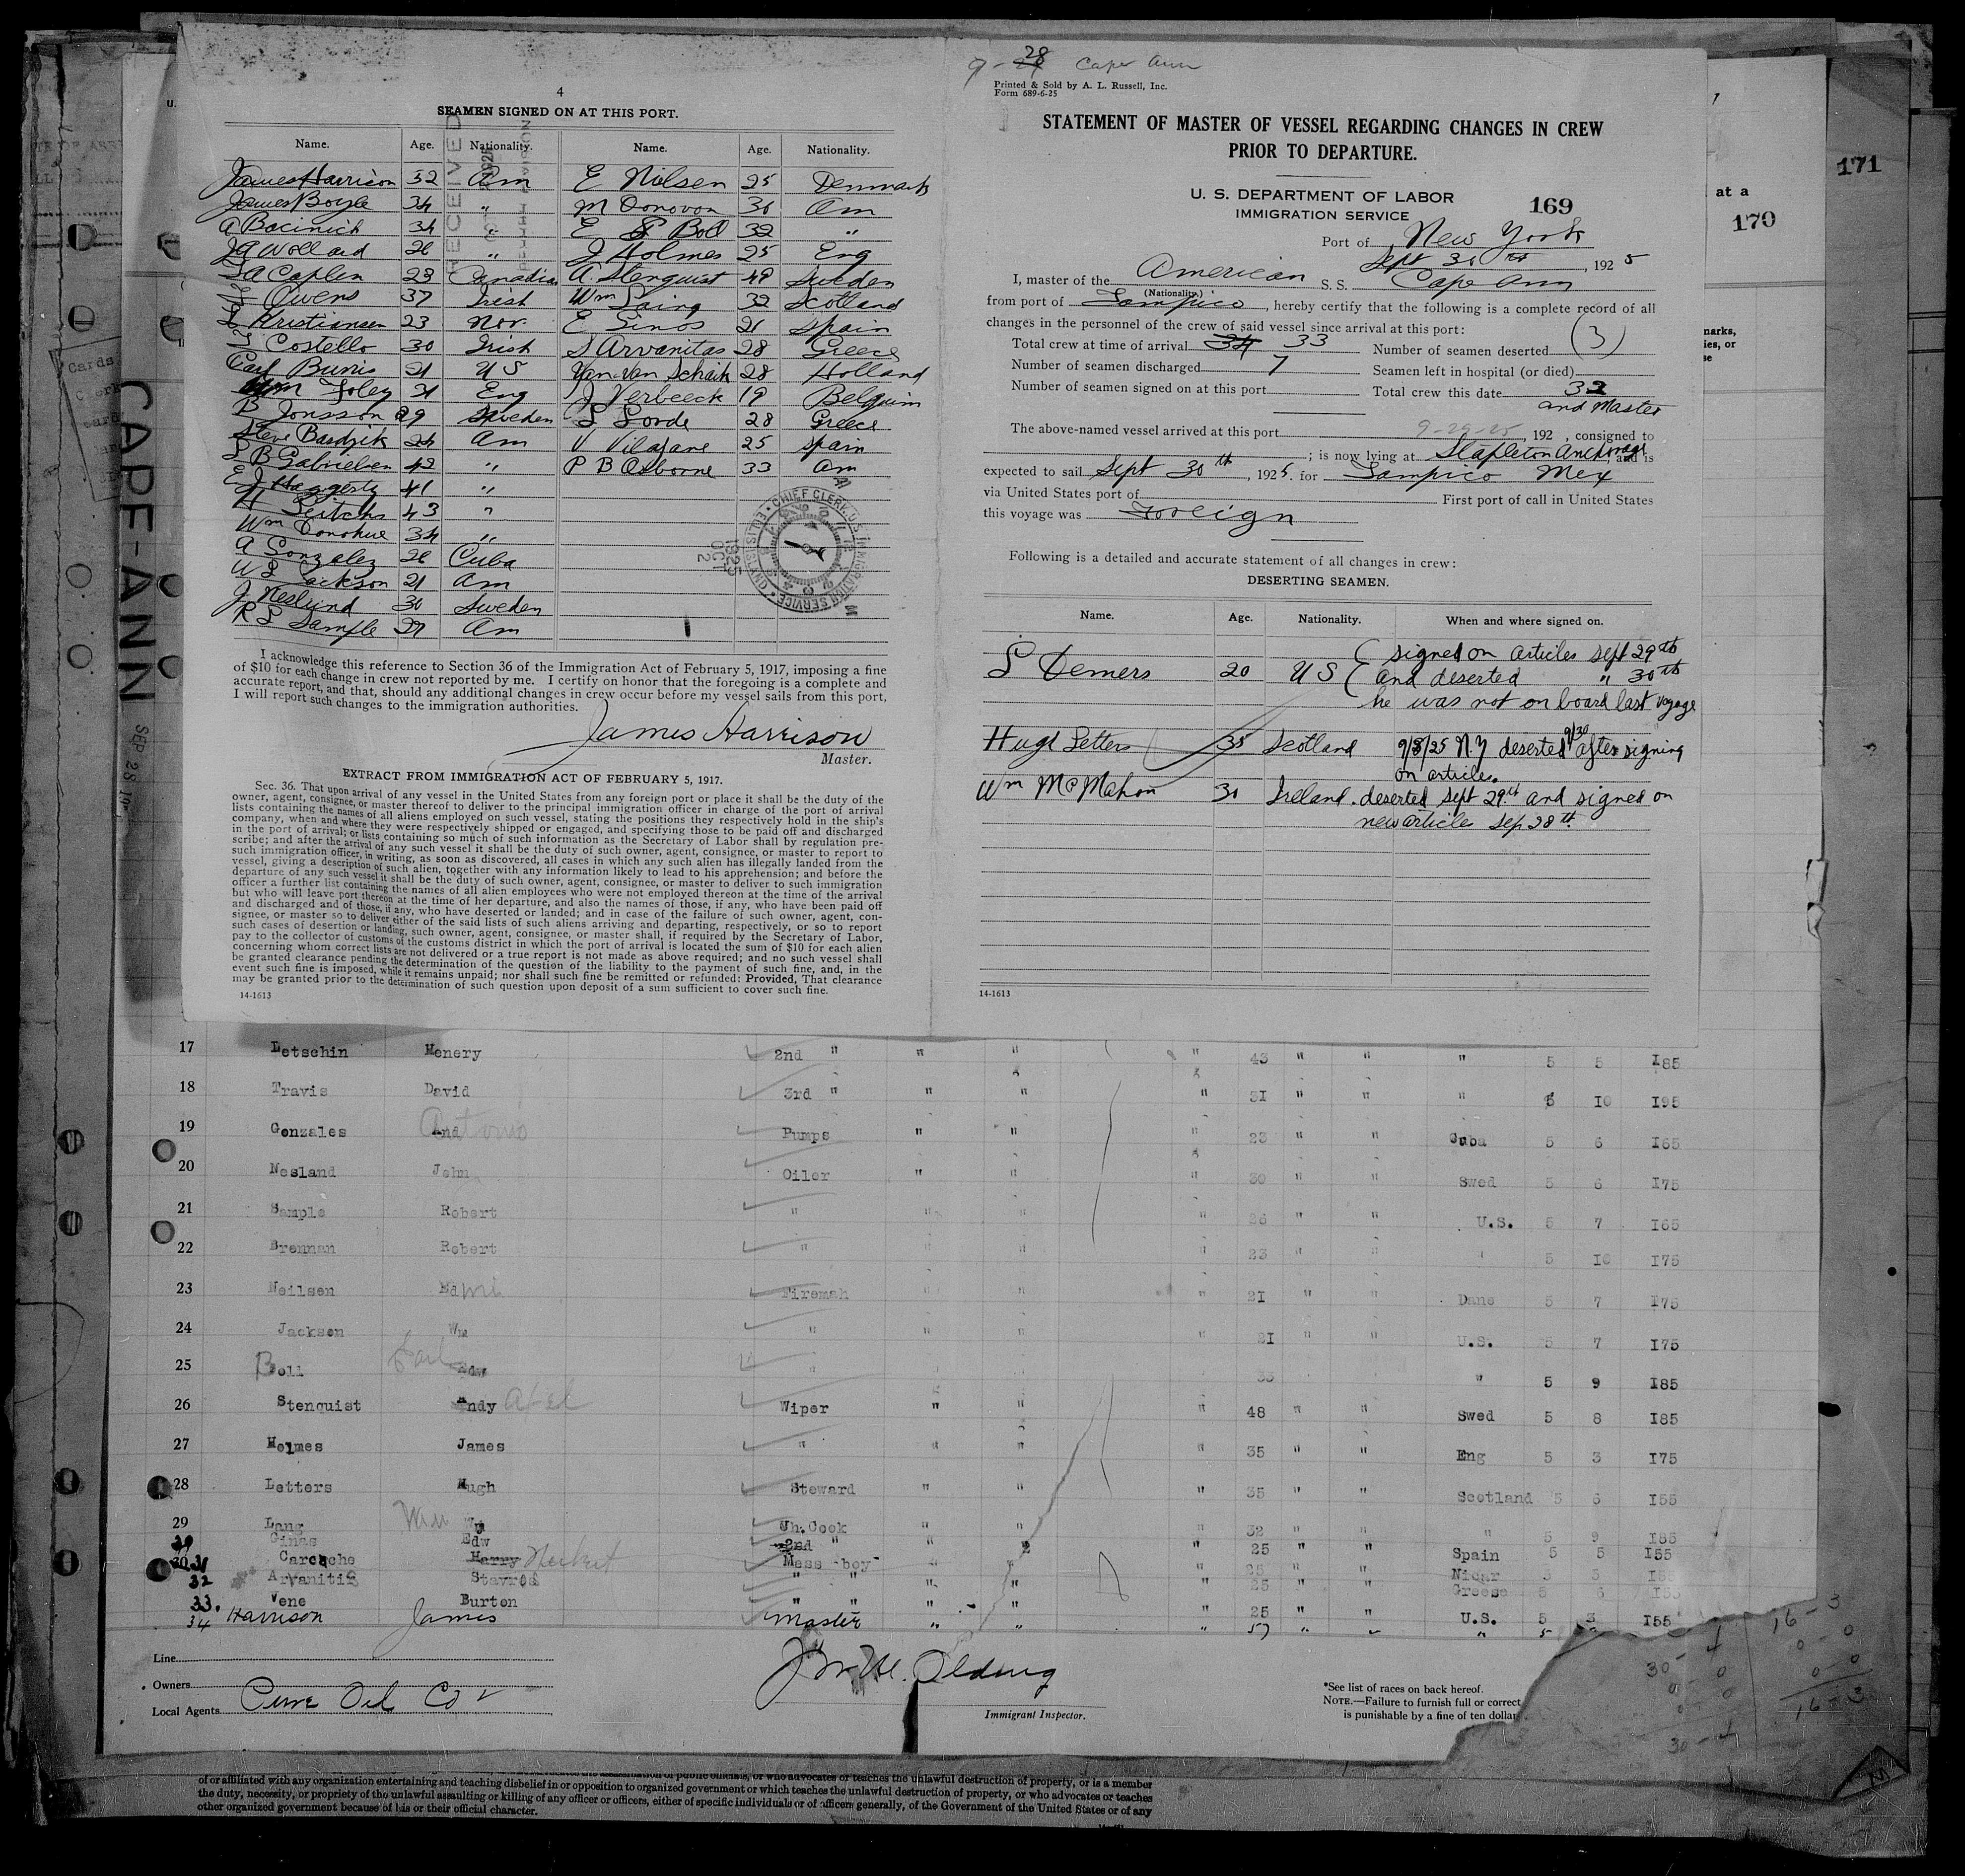 4
SEAMEN SIGNED ON AT THIS PORT.
Name. Age. Nationality. Name. Age. Nationality.
James Harrison 32 Am E Nilsen 25 Denmark
James Boyle 34 " M Donovon 30 Am
A Bacinich 34 " E Boll 32 "
JA Wollard 26 " J Holmes 25 Eng
Caplen 23 Canadian A. Stenquist 49 Sweden
Owens 37 Irish Wm Laing 32 Scotland
Kristiansen 23 Nor. E Sinos 21 Spain
Costello 30 Irish S Arvanitas 28 Greece
Carl Bunis 21 U S Van Schaik 28 Holland
Wm Foley 31 Eng J Verbeeck 19 Belgium
B Jonsson 29 Sweden 28 Greece
Steve Bardzik 24 Am V 25 Spain
Gabrielsen 42 " P B Osborne 33 Am
E J Haggerty 41 "
H 43 "
Wm Donohue 34 "
A Gonzalez 26 Cuba
W L Jackson 21 Am
J Neslund 30 Sweden
R L Sample 27 Am
RECEIVED
CHIEF CLERK, U.S. IMMIGRATION SERVICE ELLIS ISLAND
1925 OCT 2
I acknowledge this reference to Section 36 of the Immigration Act of February 5, 1917, imposing a fine
of $10 for each change in crew not reported by me. I certify on honor that the foregoing is a complete and
accurate report, and that, should any additional changes in crew occur before my vessel sails from this port,
I will report such changes to the immigration authorities.
James Harrison
Master.
EXTRACT FROM IMMIGRATION ACT OF FEBRUARY 5, 1917.
Sec. 36. That upon arrival of any vessel in the United States from any foreign port or place it shall be the duty of the
owner, agent, consignee, or master thereof to deliver to the principal immigration officer in charge of the port of arrival
lists containing the names of all aliens employed on such vessel, stating the positions they respectively hold in the ship's
company, when and where they were respectively shipped or engaged, and specifying those to be paid off and discharged
in the port of arrival; or lists containing so much of such information as the Secretary of Labor shall by regulation pre-
scribe; and after the arrival of any such vessel it shall be the duty of such owner, agent, consignee, or master to report to
such immigration officer, in writing, as soon as discovered, all cases in which any such alien has illegally landed from the
vessel, giving a description of such alien, together with any information likely to lead to his apprehension; and before the
departure of any such vessel it shall be the duty of such owner, agent, consignee, or master to deliver to such immigration
officer a further list containing the names of all alien employees who were not employed thereon at the time of the arrival
but who will leave port thereon at the time of her departure, and also the names of those, if any, who have been paid off
and discharged and of those, if any, who have deserted or landed; and in case of the failure of such owner, agent, con-
signee, or master so to deliver either of the said lists of such aliens arriving and departing, respectively, or so to report
such cases of desertion or landing, such owner, agent, consignee, or master shall, if required by the Secretary of Labor,
pay to the collector of customs of the customs district in which the port of arrival is located the sum of $10 for each alien
concerning whom correct lists are not delivered or a true report is not made as above required; and no such vessel shall
be granted clearance pending the determination of the question of the liability to the payment of such fine, and, in the
event such fine is imposed, while it remains unpaid; nor shall such fine be remitted or refunded: Provided, That clearance
may be granted prior to the determination of such question upon deposit of a sum sufficient to cover such fine.
14-1613
9-28 Cape Ann
Printed & Sold by A. L. Russell, Inc.
Form 689-6-25
STATEMENT OF MASTER OF VESSEL REGARDING CHANGES IN CREW
PRIOR TO DEPARTURE.
U. S. DEPARTMENT OF LABOR
IMMIGRATION SERVICE
169
Port of New York
Sept 30th, 1925
I, master of the American S. S. Cape Ann
(Nationality.)
from port of Tampico, hereby certify that the following is a complete record of all
changes in the personnel of the crew of said vessel since arrival at this port:
Total crew at time of arrival 34 33 Number of seamen deserted (3)
Number of seamen discharged 7 Seamen left in hospital (or died)
Number of seamen signed on at this port Total crew this date 32
and Master
The above-named vessel arrived at this port 9-29-25, 192 , consigned to
; is now lying at Stapleton Anchorage and is
expected to sail Sept 30th, 1925. for Tampico Mex
via United States port of First port of call in United States
this voyage was Foreign
Following is a detailed and accurate statement of all changes in crew:
DESERTING SEAMEN.
Name. Age. Nationality. When and where signed on.
L Demers 20 U S ( signed on articles Sept 29th
and deserted " 30th
he was not on board last voyage
Hugh Letters 35 Scotland 9/8/25 N.Y deserted 9/30 after signing
on article.
Wm McMahon 30 Ireland. deserted Sept 29th and signed on
new article Sep 28th.
14-1613
CAPE-ANN SEP 28
at a
170
171
17 Letschin Henery 2nd " " " " 43 " " " 5 5 I85
18 Travis David 3rd " " " " 31 " " " 5 10 I95
19 Gonzales And Antonio Pumps " " " 23 " " Cuba 5 6 I65
20 Nesland John Oiler " " " 30 " " Swed 5 6 I75
21 Sample Robert " " " " 26 " " U.S. 5 7 I65
22 Brennan Robert " " " " 23 " " " 5 10 I75
23 Neilsen Fireman " " " 21 " " Dane 5 7 I75
24 Jackson Wm " " " " 21 " " U.S. 5 7 I75
25 Boll Edw " 33 " 5 9 I85
26 Stenquist Andy Abel Wiper " " " 48 " " Swed 5 8 I85
27 Holmes James " " " " 35 " " Eng 5 3 I75
28 Letters Hugh Steward " " " 35 " " Scotland 5 6 I55
29 Lang Wm Ch. Cook " " " 32 " " " 5 9 I85
30 Ginas Edw 2nd " " " " 25 " " Spain 5 5 I55
31 Caroche Harry Herbert Mess boy " " " 25 " " Nicar 5 5 I55
32 Arvanitis Stavros " " " " " 25 " " Greese 5 6 I55
33. Vene Burton " " " " " 25 " " U.S. 5 3 I55
34 Harrison James Master " " " 57 " " " 5
Line
Owners
Local Agents Pure Oil Co
Immigrant Inspector.
*See list of races on back hereof.
NOTE.—Failure to furnish full or correct
is punishable by a fine of ten dollar
16-3
30-
16-3
of or affiliated with any organization entertaining and teaching disbelief in or opposition to organized government or which teaches the unlawful destruction of property, or is a member
the duty, necessity, or propriety of the unlawful assaulting or killing of any officer or officers, either of specific individuals or of officers generally, of the Government of the United States or of any
other organized government because of his or their official character.